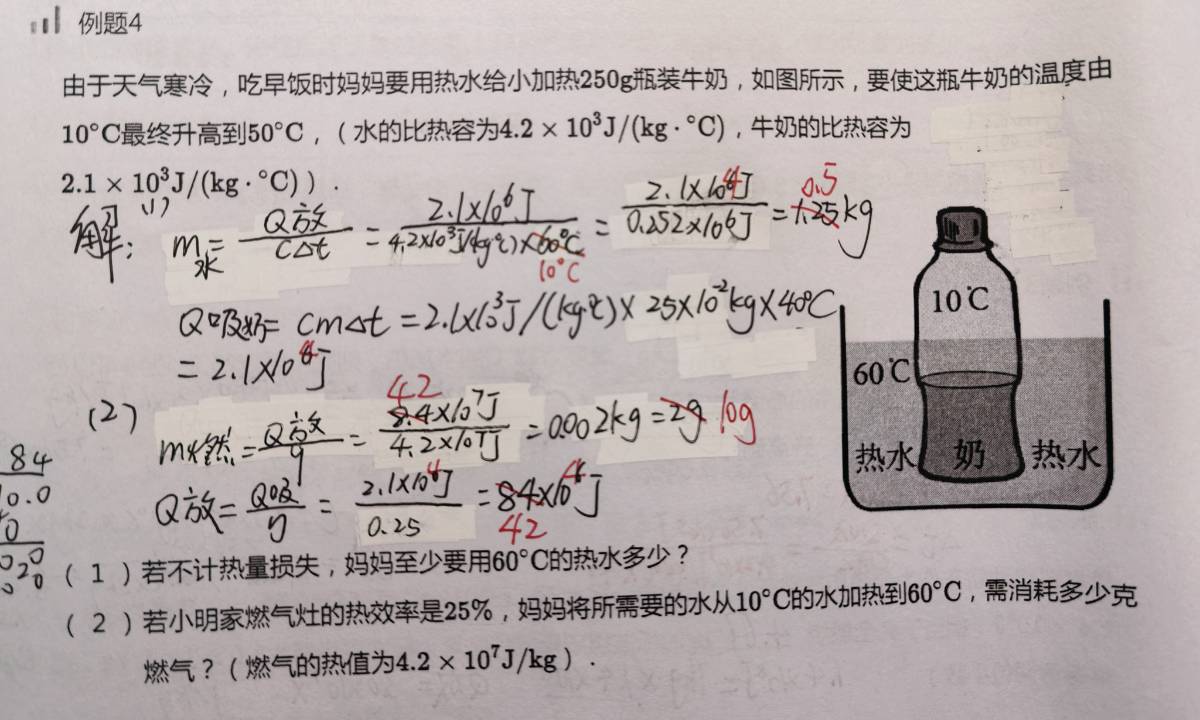 例题4
由于天气寒冷，吃早饭时妈妈要用热水给小加热250g瓶装牛奶，如图所示，要使这瓶牛奶的温度由
10°C最终升高到50°C，（水的比热容为4.2 × 10³J/(kg · °C)，牛奶的比热容为
2.1 × 10³J/(kg · °C)）.
解: (1) m水 = Q放/cΔt = 2.1×10⁶J/4.2×10³J/(kg℃)×60℃ 10℃ = 2.1×10⁴J/0.252×10⁶J = 1.25kg 0.5
Q吸奶= cmΔt = 2.1×10³J/(kg℃) × 25×10⁻²kg×40℃
= 2.1×10⁴J
(2) m燃 = Q放/q = 8.4×10⁷J/4.2×10⁷J 42 = 0.002kg = 2g 10g
Q放= Q吸/η = 2.1×10⁴J/0.25 = 84×10⁴J 42
10℃
60℃
热水 奶 热水
84
（1）若不计热量损失，妈妈至少要用60°C的热水多少？
（2）若小明家燃气灶的热效率是25%，妈妈将所需要的水从10°C的水加热到60°C，需消耗多少克
燃气？（燃气的热值为4.2 × 10⁷J/kg）.